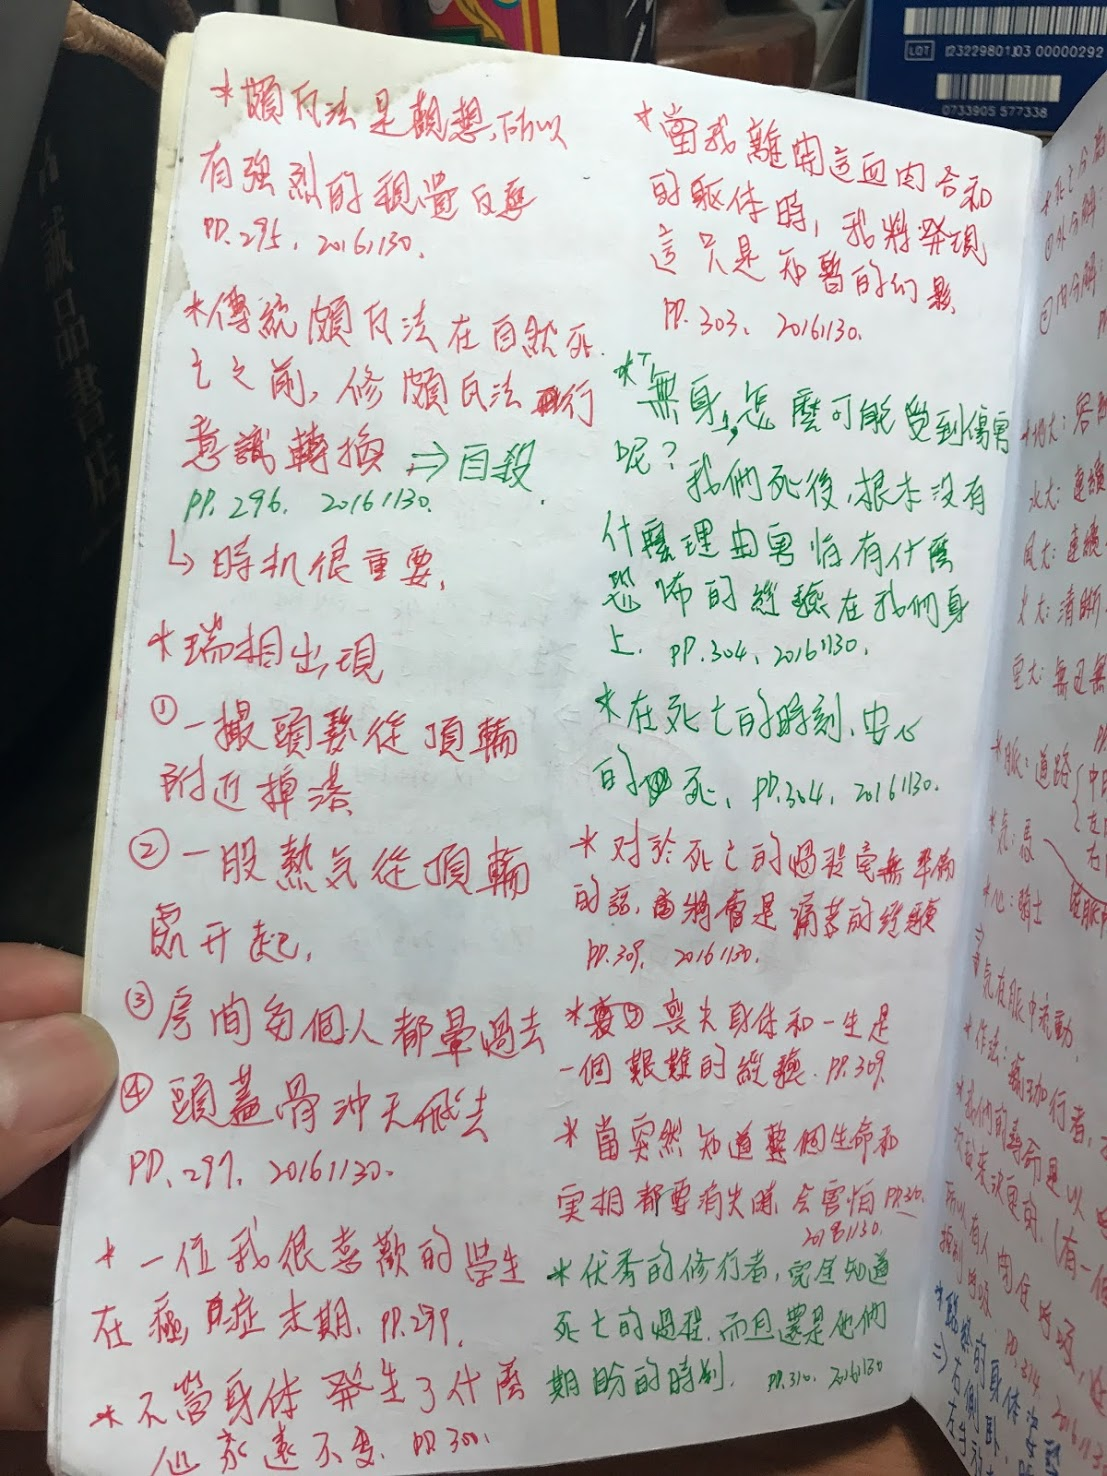 LOT 123229801J03 00000292
0733905 577338
誠品書店
*頗瓦法是觀想,所以
有強烈的視覺
PP.295, 20161130.
*傳統頗瓦法在自然死
亡之前, 修頗瓦法行
意識轉換 ⇒ 自殺.
PP.296. 20161130.
↳時机很重要,
*瑞相出現
①一撮頭髮從頂輪
附近掉落
②一股熱气從頂輪
處开起,
③房間每個人都暈過去
④頭蓋骨沖天飛去
PP.297. 20161130.
*一位我很喜歡的學生
在癌症末期, PP.299.
*不管身体發生了什麼
永遠不变. PP.300.
*當我離開這血肉合和
的躯体時, 我將發現
這只是短暫的幻影.
PP.303. 20161130.
*「無身」,怎麼可能受到傷害
呢? 我們死後,根本沒有
什麼理由害怕有什麼
恐怖的經驗在我們身
上. PP.304, 20161130.
*在死亡的時刻,安心
的死, PP.304, 20161130.
*对於死亡的過程毫無準備
的話,將會是痛苦的經驗
PP.309, 20161130.
*喪失身体和一生是
一個艱難的經驗. PP.309.
*當突然知道整個生命和
実相都要消失時 会害怕 PP.310.
20161130.
*优秀的修行者, 完全知道
死亡的過程, 而且還是他們
期盼的時刻. PP.310. 20161130
水大: 連續
風大: 連續
火大: 清晰
*脈: 道路
*心: 騎士
气在脈中流動.
*作法: 瑜珈行者,
*我們的壽命是以
次數來決定的. (有一個
所以有人閉住呼吸,
⇒右側卧